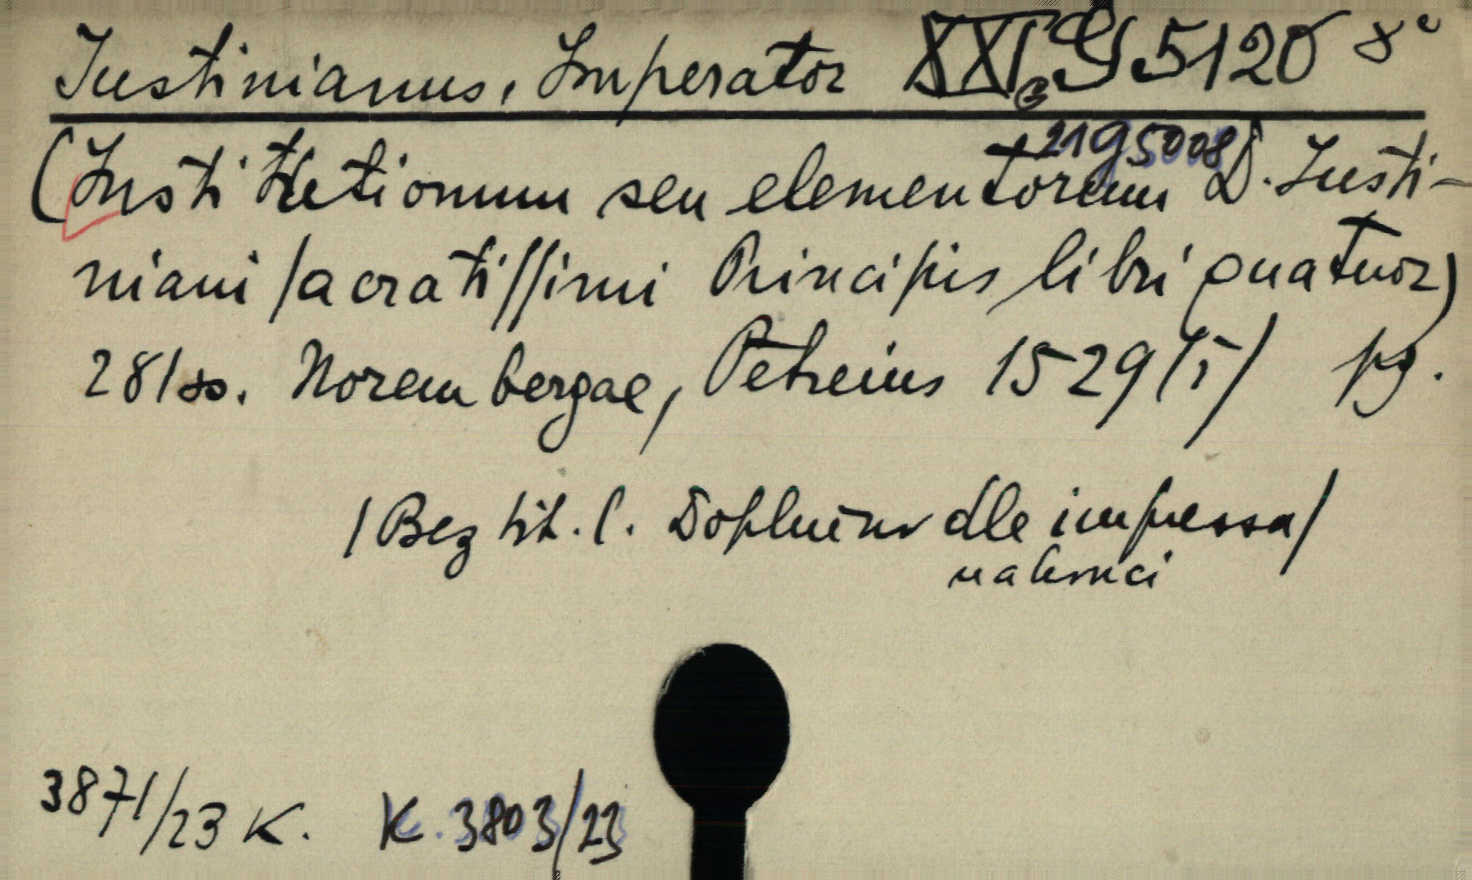 Iustinianus, Imperator XXI.G 5120 8°
21G5008
(Institutionum seu elementorum D. Iusti-
niani sacratissimi Principis libri quatuor)
281ss. Norembergae, Petreius 1529 /I/ pg.
/Bez tit. l. Doplněno dle impressa/
na konci
3871/23 K. K. 3803/23